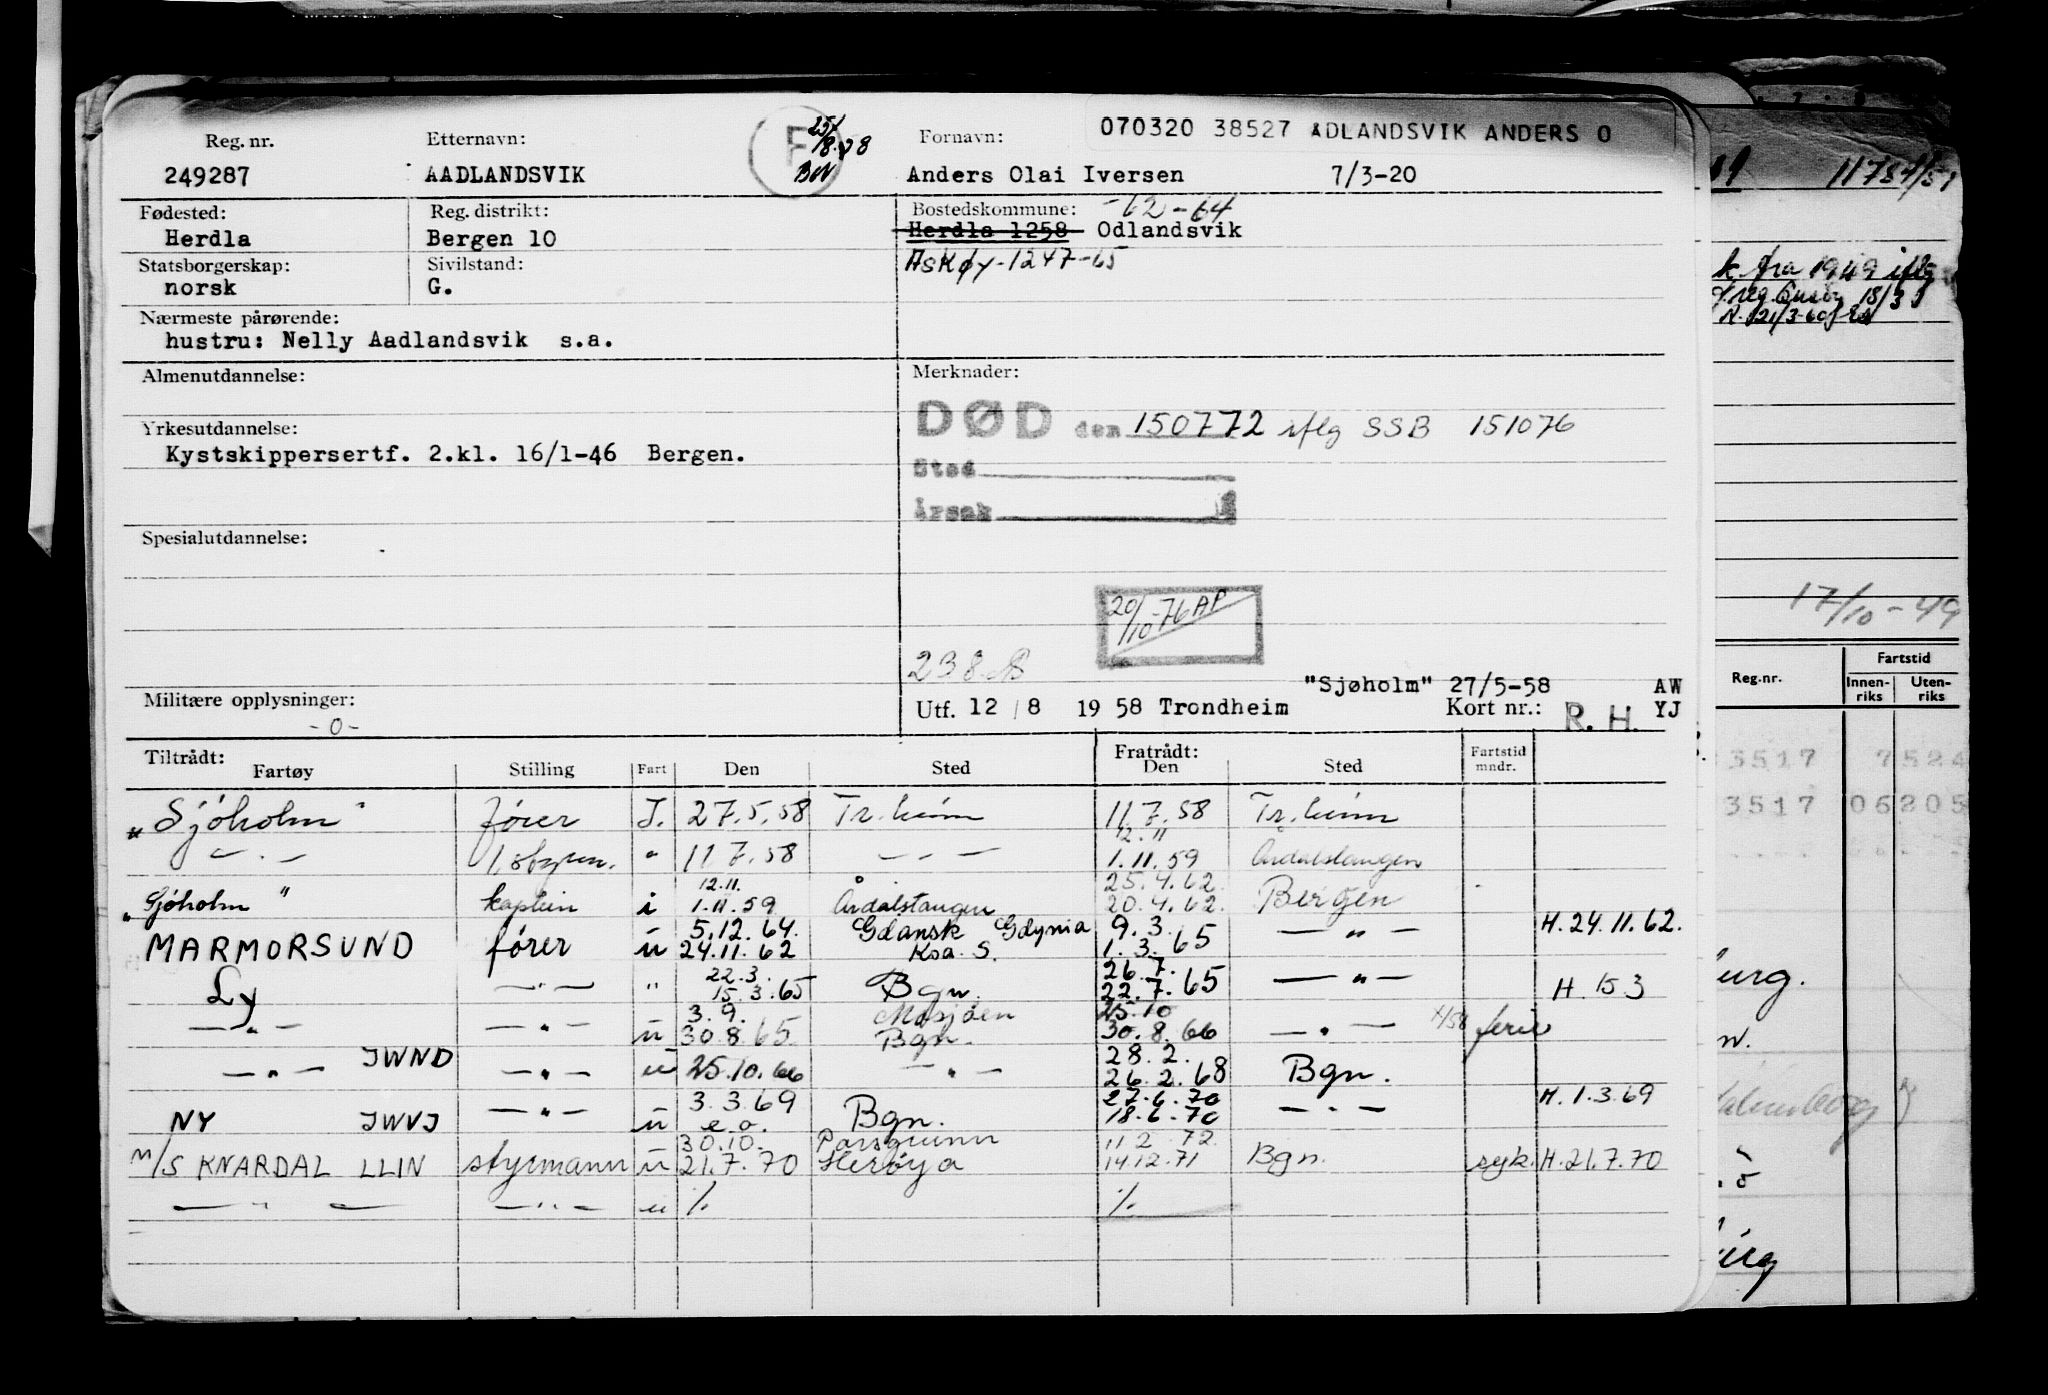 Reg. nr. Etternavn: Fornavn: 070320 38527 ADLANDSVIK ANDERS O
249287 AADLANDSVIK Anders Olai Iversen 7/3-20
Fødested: Reg. distrikt: Bostedskommune: -62-64
Herdla Bergen 10 Herdla 1258 Odlandsvik
Statsborgerskap: Sivilstand: Askøy-1247-65
norsk G.
Nærmeste pårørende:
hustru: Nelly Aadlandsvik s.a.
Almenutdannelse: Merknader:
DØD den 150772 iflg SSB 151076
Yrkesutdannelse:
Kystskippersertf. 2.kl. 16/1-46 Bergen.
Sted
Årsak
Spesialutdannelse:
20/10-76 AP
"Sjøholm" 27/5-58 AW
Militære opplysninger: Utf. 12/8 1958 Trondheim Kort nr.: R. H. YJ
-0-
Tiltrådt: Fratrådt:
Fartøy Stilling Fart Den Sted Den Sted Fartstid mndr.
"Sjøholm" fører I. 27.5.58 Tr.heim 11.7.58 Tr.heim
— . — " 11 7.58 — — — 12.11 1.11.59 Årdalstangen
"Sjøholm" kaptein i 12.11. 1.11.59 Årdalstangen 25.4.62. 20.4.62. Bergen
MARMORSUND fører u 5.12.64. 24.11.62 Gdansk Gdynia Koa. S. 9.3. 1.3.65 — " — H. 24.11.62.
Ly — " — " 22.3. 15.3.65 Bgn. 26.7. 22.7.65 — " — H. 15 3
— " — — " — u 3.9. 30.8.65 Mosjøen Bgn. 25.10 30.8.66 — " — ferie
— " — JWND — " — u 25.10.66 — " — 28.2. 26.2.68 Bgn.
NY JWVJ — " — u 3.3.69 e.o. Bgn. 27.6.70 18.6.70 — " — H. 1.3.69
M/S KNARDAL LLIN styrmann u 30.10. 21.7.70 Porsgrunn Herøya 11 2 72. 14.12.71 Bgn. syk. H. 21.7.70
— " — — " — u %. %.
11784/51
k. fra 1949 iflg
18/3
21/3-60
17/10-49
Reg.nr. Fartstid
Innenriks Utenriks
3517 7524
3517 06205
urg.
n.